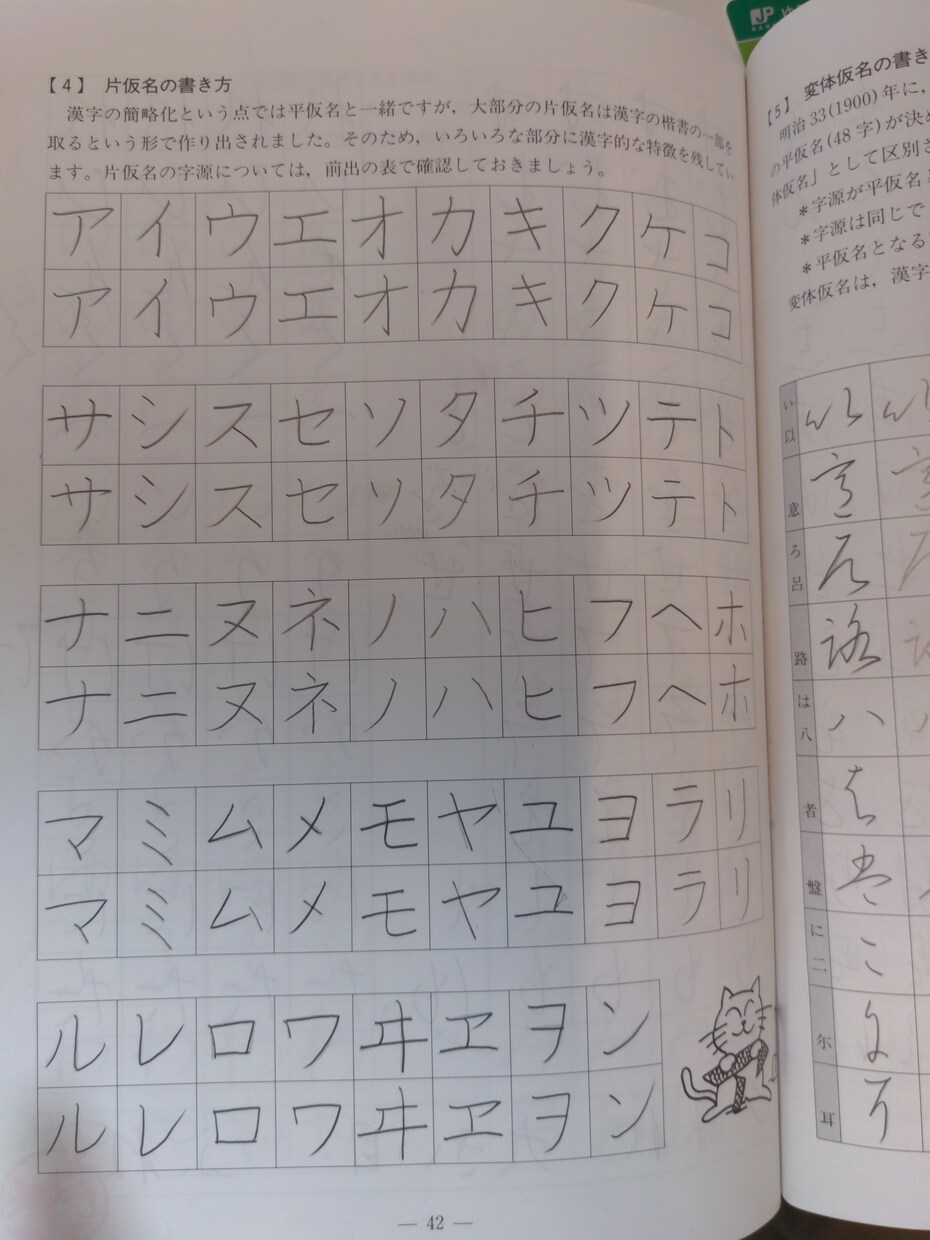 【4】 片仮名の書き方
漢字の簡略化という点では平仮名と一緒ですが，大部分の片仮名は漢字の楷書の一部を
取るという形で作り出されました。そのため，いろいろな部分に漢字的な特徴を残してい
ます。片仮名の字源については，前出の表で確認しておきましょう。
アイウエオカキクケコ
アイウエオカキクケコ
サシスセソタチツテト
サシスセソタチツテト
ナニヌネノハヒフヘホ
ナニヌネノハヒフヘホ
マミムメモヤユヨラリ
マミムメモヤユヨラリ
ルレロワヰヱヲン
ルレロワヰヱヲン
— 42 —
JP
【5】 変体仮名の書き
明治33(1900)年に，
の平仮名(48字)が決め
体仮名」として区別さ
＊字源が平仮名と
＊字源は同じで
＊平仮名となる
変体仮名は，漢字
い 以
意
ろ 呂
路
は 八
者
盤
に 二
尓
耳